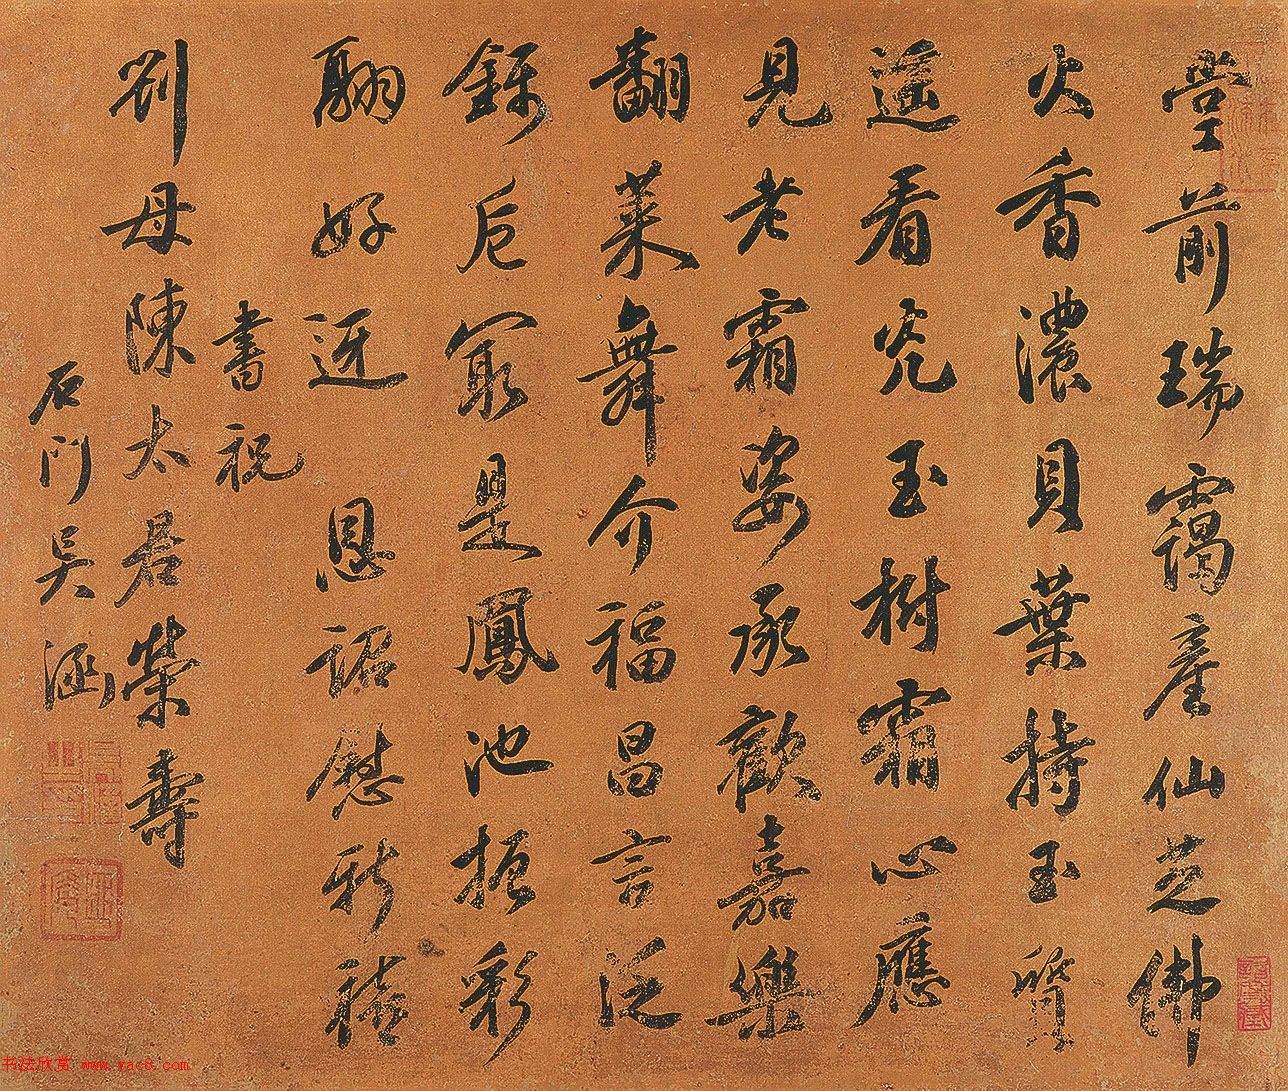 堂前瑞靄產仙芝佛
火香濃貝葉持玉質
遥看光玉樹霜心應
見老霜姿承歡嘉樂
翻萊舞介福昌言泛
卮最是鳳池振彩
翮好迓恩詔慰新禧
書祝
劉母陳太君榮壽
石門吳涵
书法欣赏 www.yac8.com